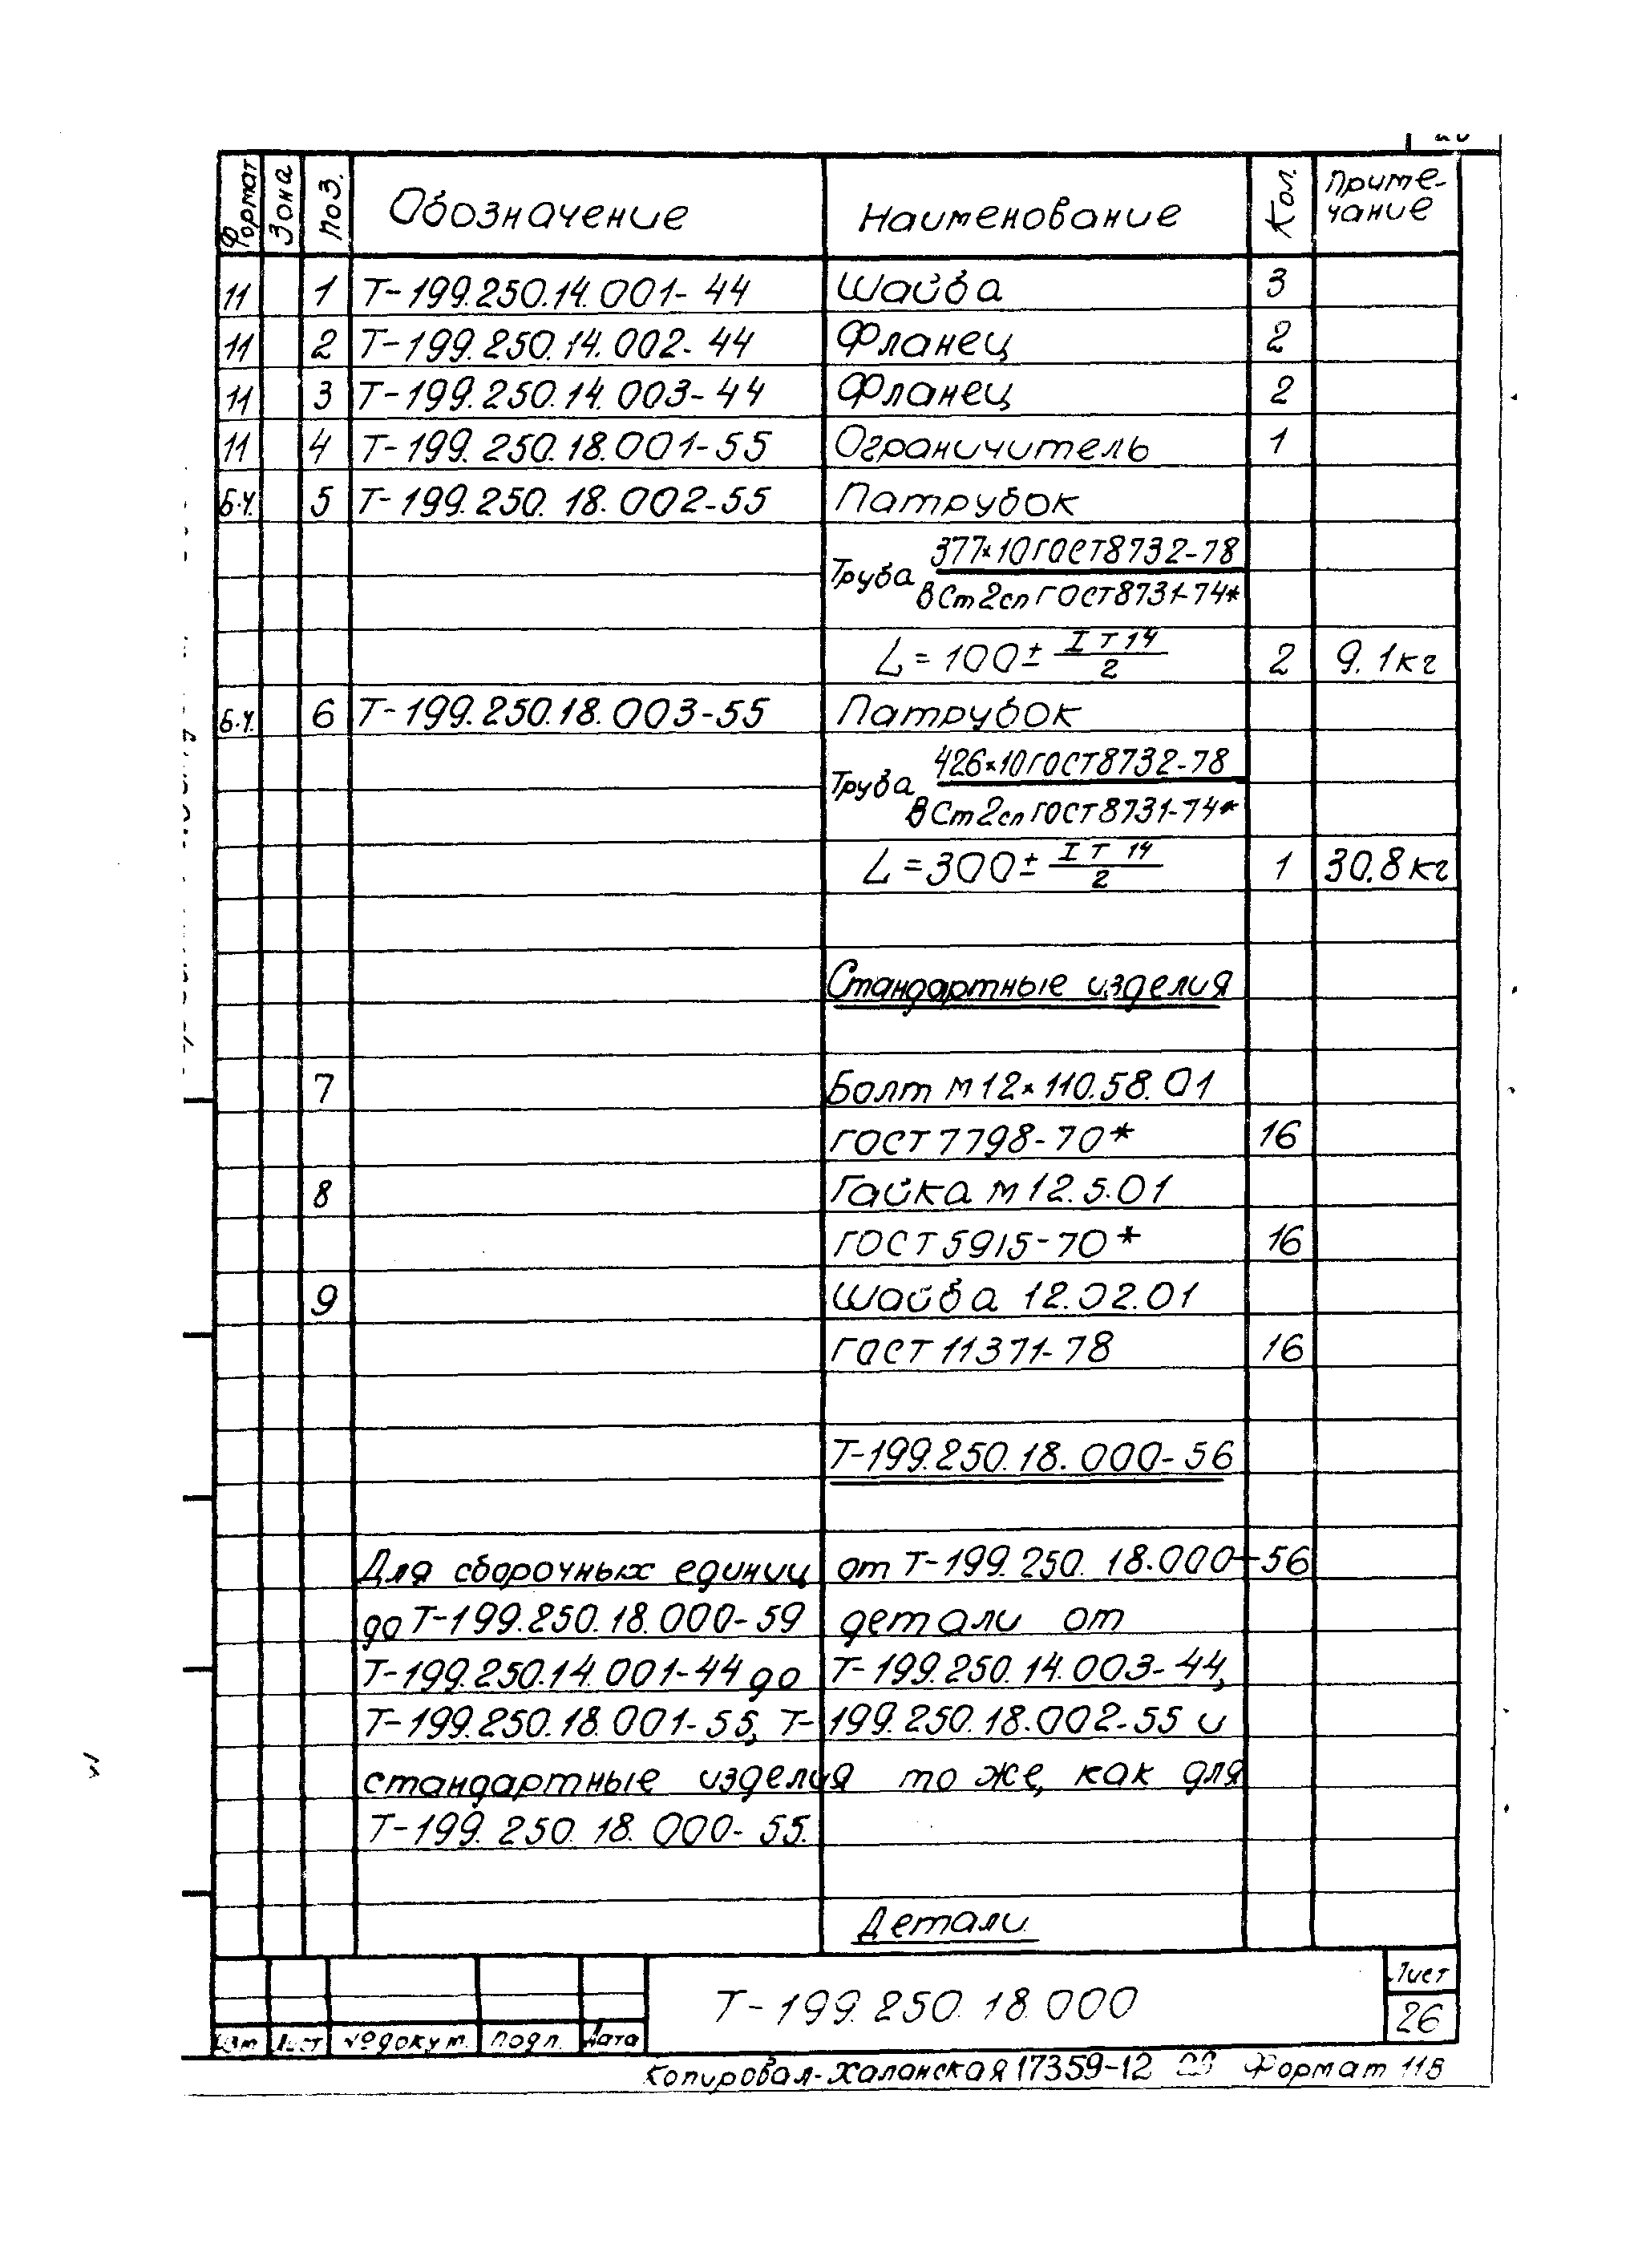 Формат Зона Поз. Обозначение Наименование Кол. Приме-
чание
11 1 Т-199.250.14.001-44 Шайба 3
11 2 Т-199.250.14.002-44 Фланец 2
11 3 Т-199.250.14.003-44 Фланец 2
11 4 Т-199.250.18.001-55 Ограничитель 1
Б.Ч. 5 Т-199.250.18.002-55 Патрубок
Труба 377×10 ГОСТ 8732-78
ВСт2сп ГОСТ 8731-74*
L=100± IT14
2 2 9.1кг
Б.Ч. 6 Т-199.250.18.003-55 Патрубок
Труба 426×10 ГОСТ 8732-78
ВСт2сп ГОСТ 8731-74*
L=300± IT14
2 1 30.8кг
Стандартные изделия
7 Болт М12×110.58.01
ГОСТ 7798-70* 16
8 Гайка М12.5.01
ГОСТ 5915-70* 16
9 Шайба 12.02.01
ГОСТ 11371-78 16
Т-199.250.18.000-56
Для сборочных единиц от Т-199.250.18.000-56
до Т-199.250.18.000-59 детали от
Т-199.250.14.001-44 до Т-199.250.14.003-44,
Т-199.250.18.001-55, Т-199.250.18.002-55 и
стандартные изделия то же, как для
Т-199.250.18.000-55.
Детали
Т-199.250.18.000
Лист
26
Изм Лист № докум. Подп. Дата
Копировал-Халанская 17359-12 Формат 11В